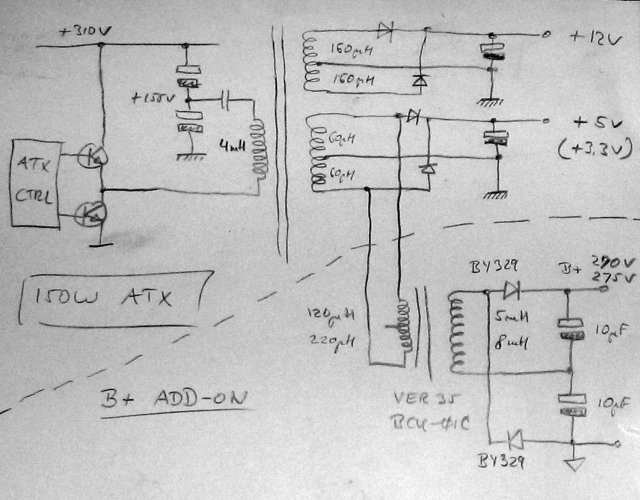 +310V
+155V
4mH
ATX
CTRL
160µH
160µH
+12V
60µH
60µH
+5V
(+3.3V)
150W ATX
B+ ADD-ON
120µH
220µH
BY329
B+
290V
275V
5mH
8mH
10µF
10µF
VER 35
BCK-01C
BY329